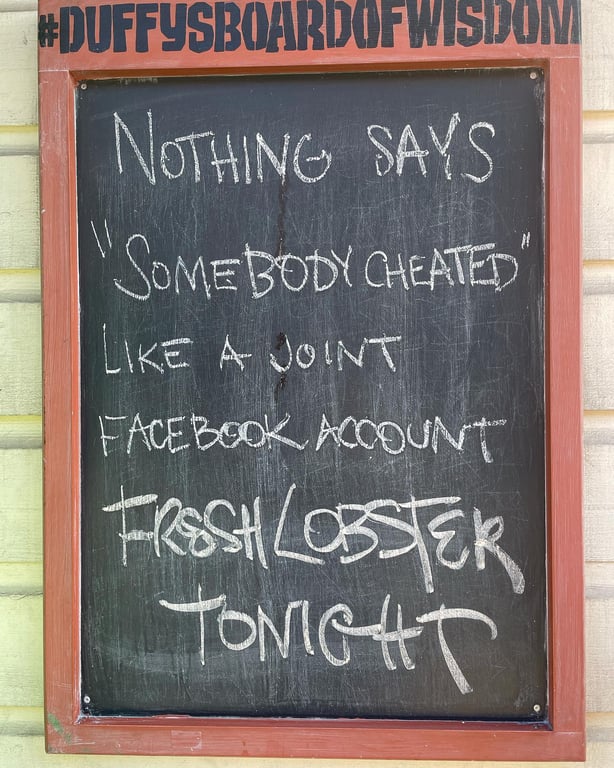 #DUFFYSBOARDOFWISDOM
NOTHING SAYS
"SOMEBODY CHEATED"
LIKE A JOINT
FACEBOOK ACCOUNT
FRESH LOBSTER
TONIGHT